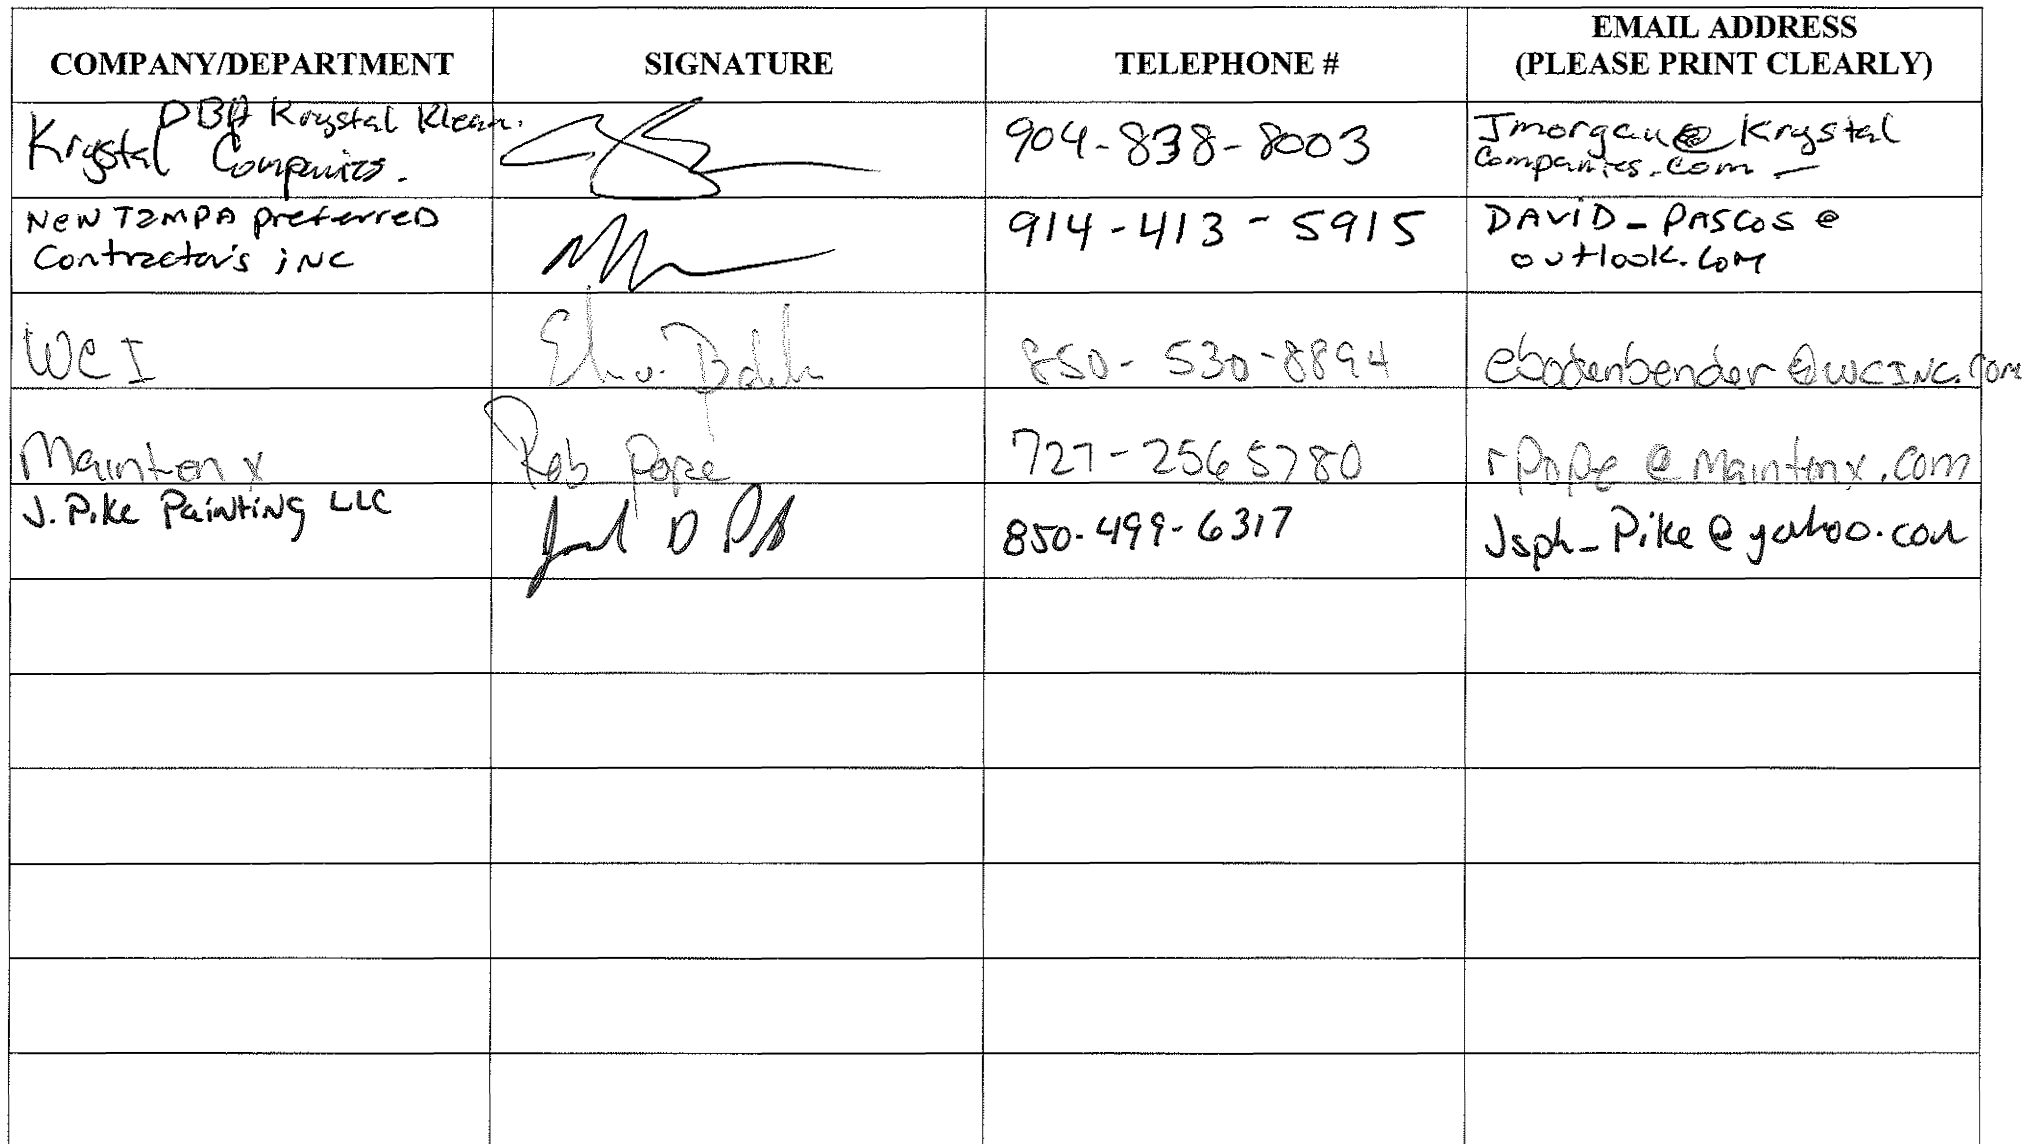 COMPANY/DEPARTMENT SIGNATURE TELEPHONE # EMAIL ADDRESS
(PLEASE PRINT CLEARLY)
DBA Krystal Klean.
Krystal Companies.
904-838-8003
Jmorgan@Krystal
Companies.com
New T2MPA preferred
Contractor's inc
914-413-5915
DAViD_PASCOS@
outlook.com
WCI
850-530-8894
ebodenbender@WCINC.com
Maintenx
Rob Pope
727-256 5780
rpope@Maintenx.com
J. Pike Painting LLC
850-499-6317
Jsph_Pike@yahoo.com